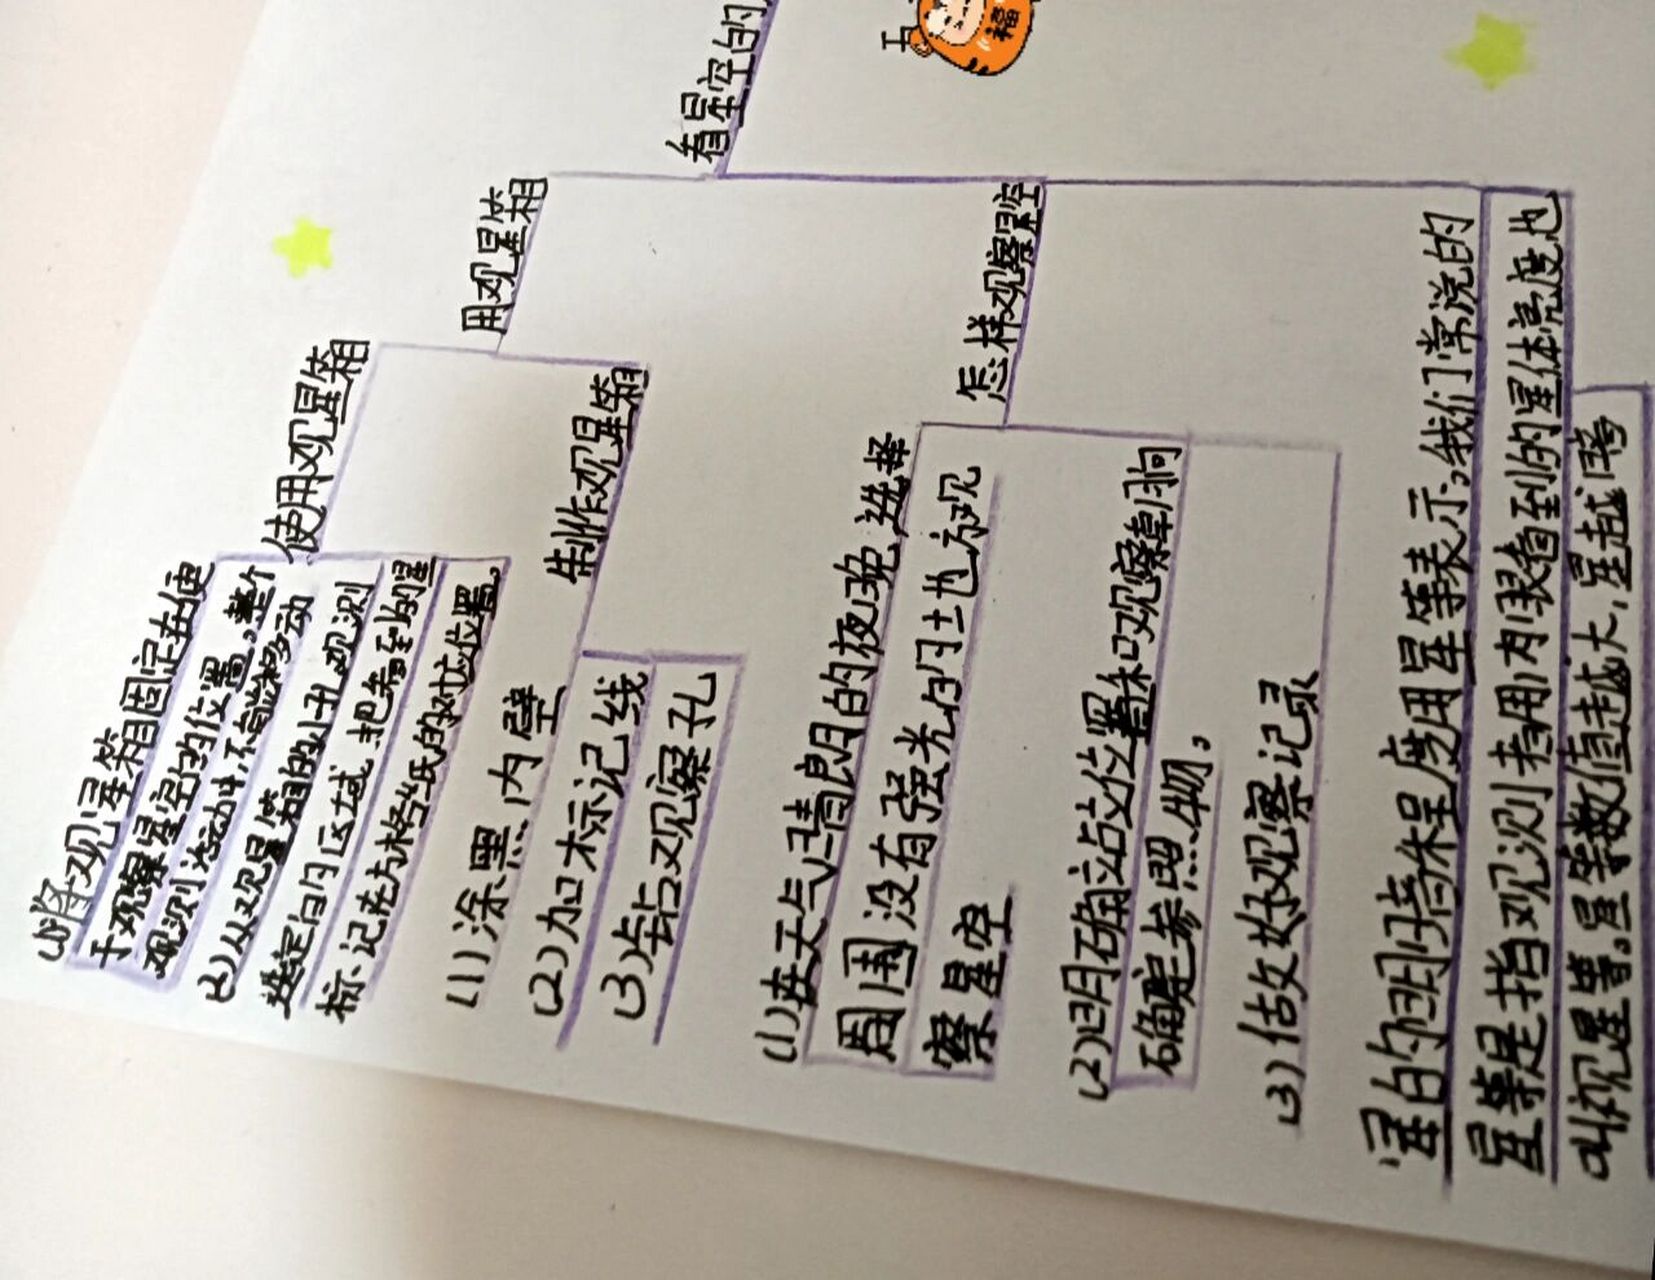 看星空的
用观星箱
使用观星箱
(1)将观星箱固定在便
于观察星空的位置,整个
观测活动中,不能移动
(2)从观星箱的小孔观测
选定的区域,把看到的星
标记在方格纸的对应位置,
制作观星箱
(1)涂黑内壁
(2)加标记线
(3)钻观察孔
怎样观察星空
(1)在天气晴朗的夜晚,选择
周围没有强光的地方观
察星空
(2)明确站位置和观察时间
确定参照物,
(3)做好观察记录
星的明暗程度用星等表示,我们常说的
星等是指观测者用肉眼看到的星体亮度也
叫视星等。星等数值越大,星越暗
福